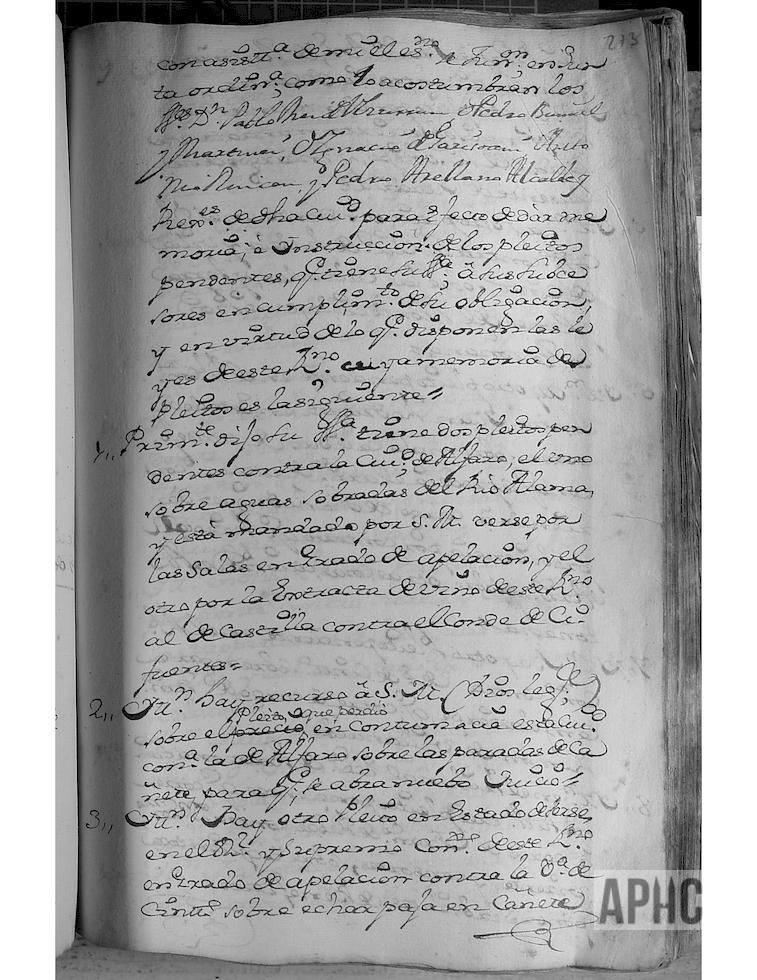 213
con asistt.ª de mi el es.no y Ferm.n en Jun
ta ordin.ª como lo acostumbran los
SS.es D.n Pablo Pedro
y Martinez, Ignacio Anto
nio Rincon, y Pedro Arellano Alcalde y
Rex.es de dha ciu.d para efecto de dar me
moria, è Instruccion de los pleitos
pendentes, q.e tiene su SS.ª â sus subce
sores en cumplim.to de su obligacion,
y en virtud de lo q.e disponen las le
yes de este R.no cuya memoria de
pleitos es la siguiente=
1,, Prim.te dijo su SS.ª tiene dos pleitos pen
dentes contra la Ciu.d de Alfaro, el uno
sobre aguas sobradas del Rio Alama,
y està mandado por S. M. verse por
las Salas en Grado de apelacion, y el
otro por la Extracta de vino de este R.no
al de Castilla contra el Conde de Ci-
fuentes=
2,, Itt.n hay recurso â S. M. (Dios le g.e)
Pleito, que perdio
sobre el precio, en contumacia esta ciu.d
con.ª la de Alfaro sobre las paradas de Ca
ñete para q.e se abra nuebo Juicio=
3,, Itt.n hay otro Pleito en Estado de verse
en el R.l y Supremo Con.o de este R.no
en Grado de apelacion contra la V.ª de
Cintt.º sobre echar paja en Cañete
APHC